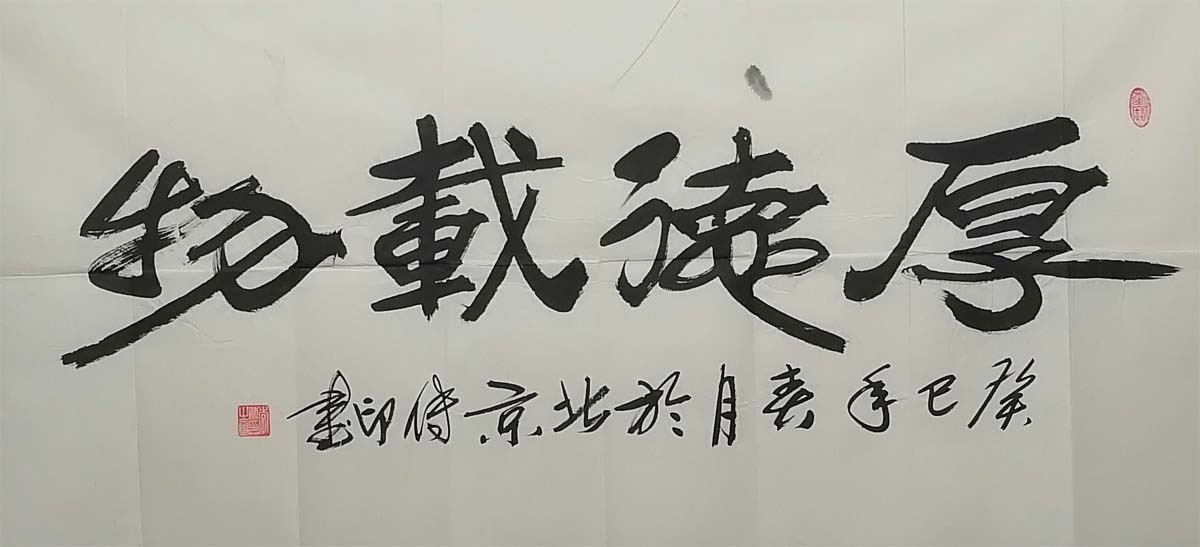 厚德載物
癸巳年春月於北京傅印書